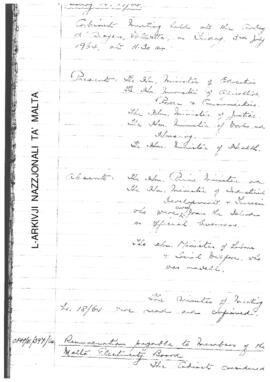 Cabinet Meeting held at the Auberge
d'Aragon, Valletta, on Friday 3rd July
1964, at 11.30 am.
Present: The Hon. Minister of Education
The Hon. Minister of Agriculture,
Power & Communications.
The Hon. Minister of Justice.
The Hon. Minister of Works and
Housing.
The Hon. Minister of Health.
Absent: The Hon. Prime Minister and
The Hon. Minister of Industrial
Development & Tourism
who were away from the Island
on official business.
The Hon. Minister of Labour
& Social Welfare, who
was unwell.
The Minutes of Meeting
No. 18/64 were read and confirmed.
Remuneration payable to Members of the
Malta Electricity Board
The Cabinet considered
L-ARKIVJI NAZZJONALI TA' MALTA